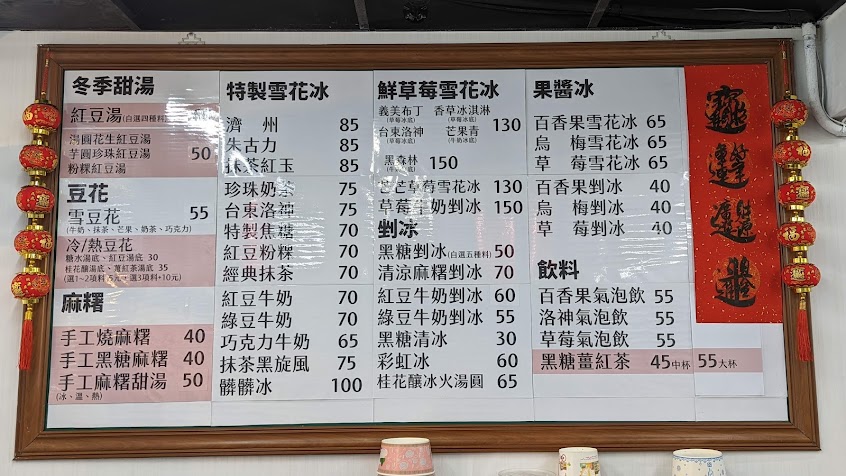 冬季甜湯
紅豆湯(自選四種料)
湯圓花生紅豆湯
芋圓珍珠紅豆湯 50
粉粿紅豆湯
豆花
雪豆花 55
(牛奶、抹茶、芒果、奶茶、巧克力)
冷/熱豆花
糖水湯底、紅豆湯底 30
桂花釀湯底、薑紅茶湯底 35
(選1~2項料 元、選3項料+10元)
麻糬
手工燒麻糬 40
手工黑糖麻糬 40
手工麻糬甜湯 50
(冰、溫、熱)
特製雪花冰
濟州 85
朱古力 85
抹茶紅玉 85
珍珠奶茶 75
台東洛神 75
特製焦糖 70
紅豆粉粿 75
經典抹茶 70
紅豆牛奶 70
綠豆牛奶 70
巧克力牛奶 65
抹茶黑旋風 75
髒髒冰 100
鮮草莓雪花冰
義美布丁 香草冰淇淋
(草莓冰底) (草莓冰底)
130
台東洛神 芒果青
(草莓冰底) (牛奶冰底)
黑森林 150
(牛奶冰底)
芒芒草莓雪花冰 130
草莓牛奶剉冰 150
剉冰
黑糖剉冰(自選五種料) 50
清涼麻糬剉冰 70
紅豆牛奶剉冰 60
綠豆牛奶剉冰 55
黑糖清冰 30
彩虹冰 60
桂花釀冰火湯圓 65
果醬冰
百香果雪花冰 65
烏梅雪花冰 65
草莓雪花冰 65
百香果剉冰 40
烏梅剉冰 40
草莓剉冰 40
飲料
百香果氣泡飲 55
洛神氣泡飲 55
草莓氣泡飲 55
黑糖薑紅茶 45中杯 55大杯